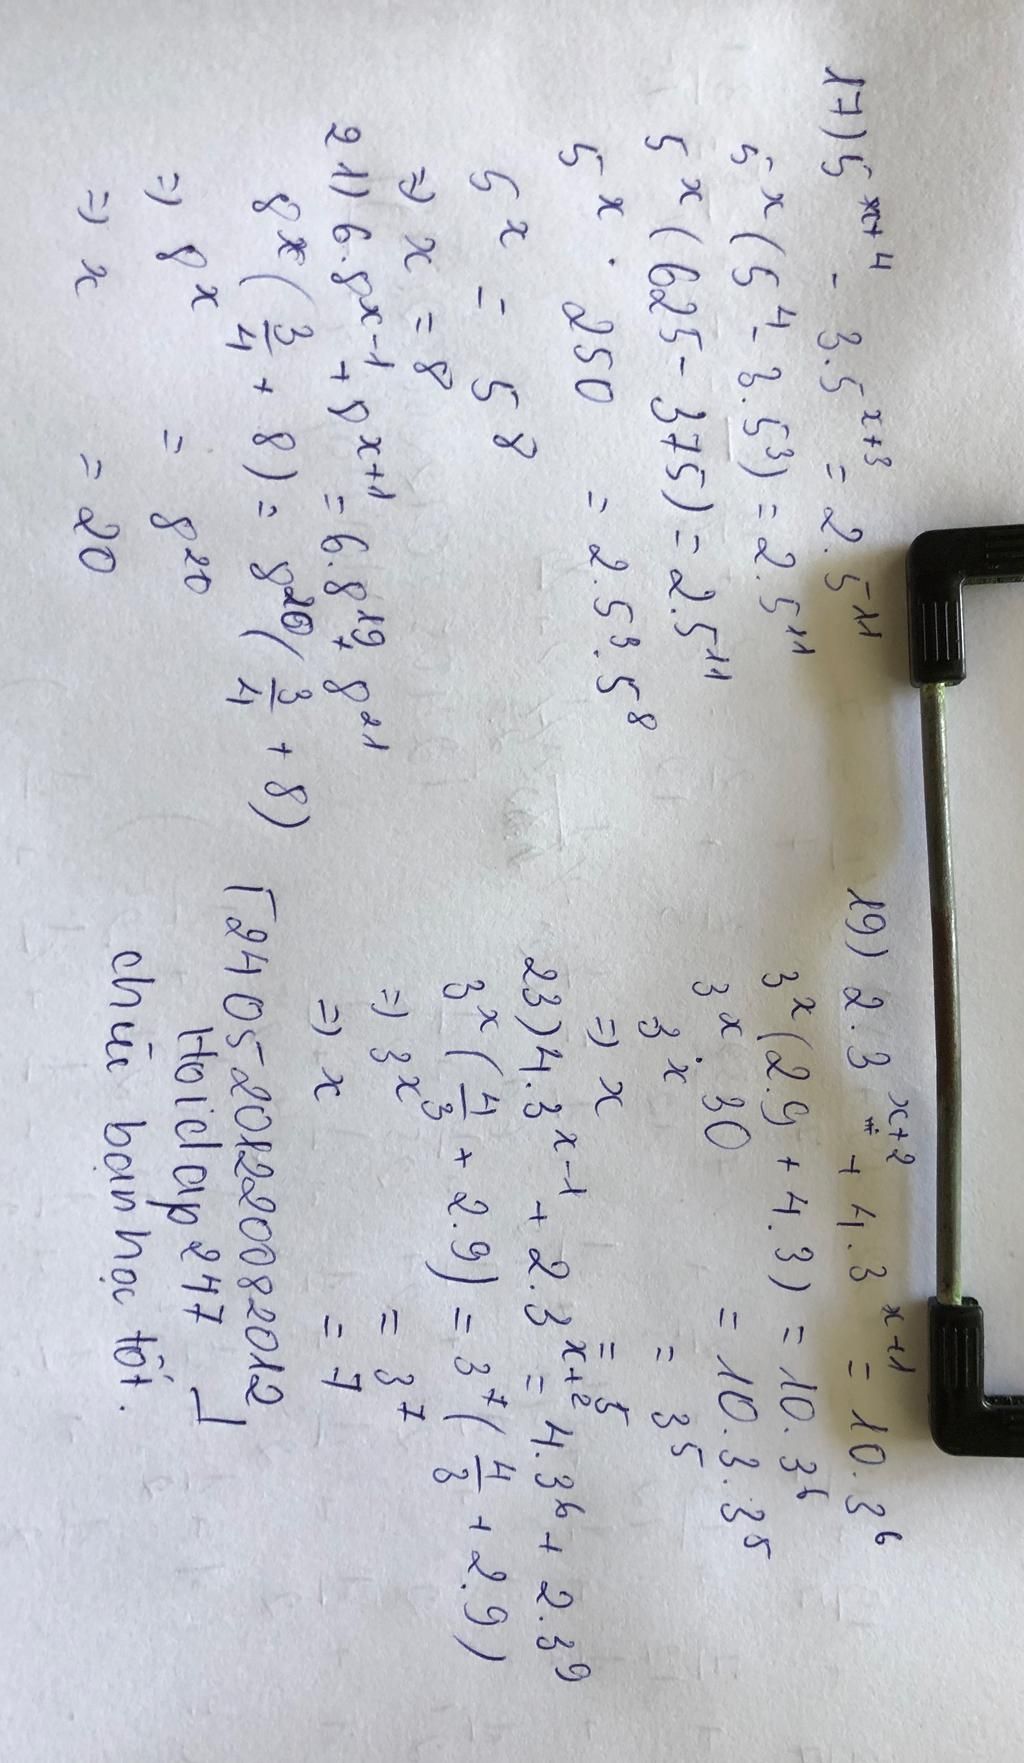 17) 5^{x+4} - 3.5^{x+3} = 2.5^{11}
5^x (5^4 - 3.5^3) = 2.5^{11}
5^x (625 - 375) = 2.5^{11}
5^x . 250 = 2.5^3.5^8
5^x = 5^8
=> x = 8
21) 6.8^{x-1} + 8^{x+1} = 6.8^{19} + 8^{21}
8^x (3/4 + 8) = 8^{20} (3/4 + 8)
=> 8^x = 8^{20}
=> x = 20
19) 2.3^{x+2} + 4.3^{x+1} = 10.3^6
3^x (2.9 + 4.3) = 10.3^6
3^x . 30 = 10.3.3^5
3^x = 3^5
=> x = 5
23) 4.3^{x-1} + 2.3^{x+2} = 4.3^6 + 2.3^9
3^x (4/3 + 2.9) = 3^7 (4/3 + 2.9)
=> 3^x = 3^7
=> x = 7
「2405201220082012
Hoidap247 」
chúc bạn học tốt.